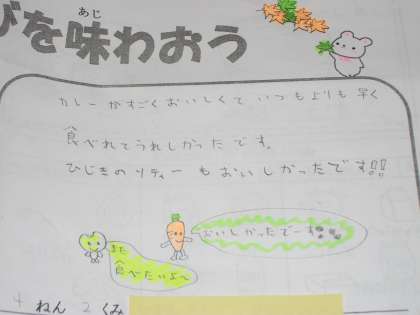 びを味わおう
あじ
カレーがすごくおいしくていつもよりも早く
食べれてうれしかったです。
ひじきのソティーもおいしかったです!!
おいしかったでーす
また
食べたいよ〜
4ねん2くみ